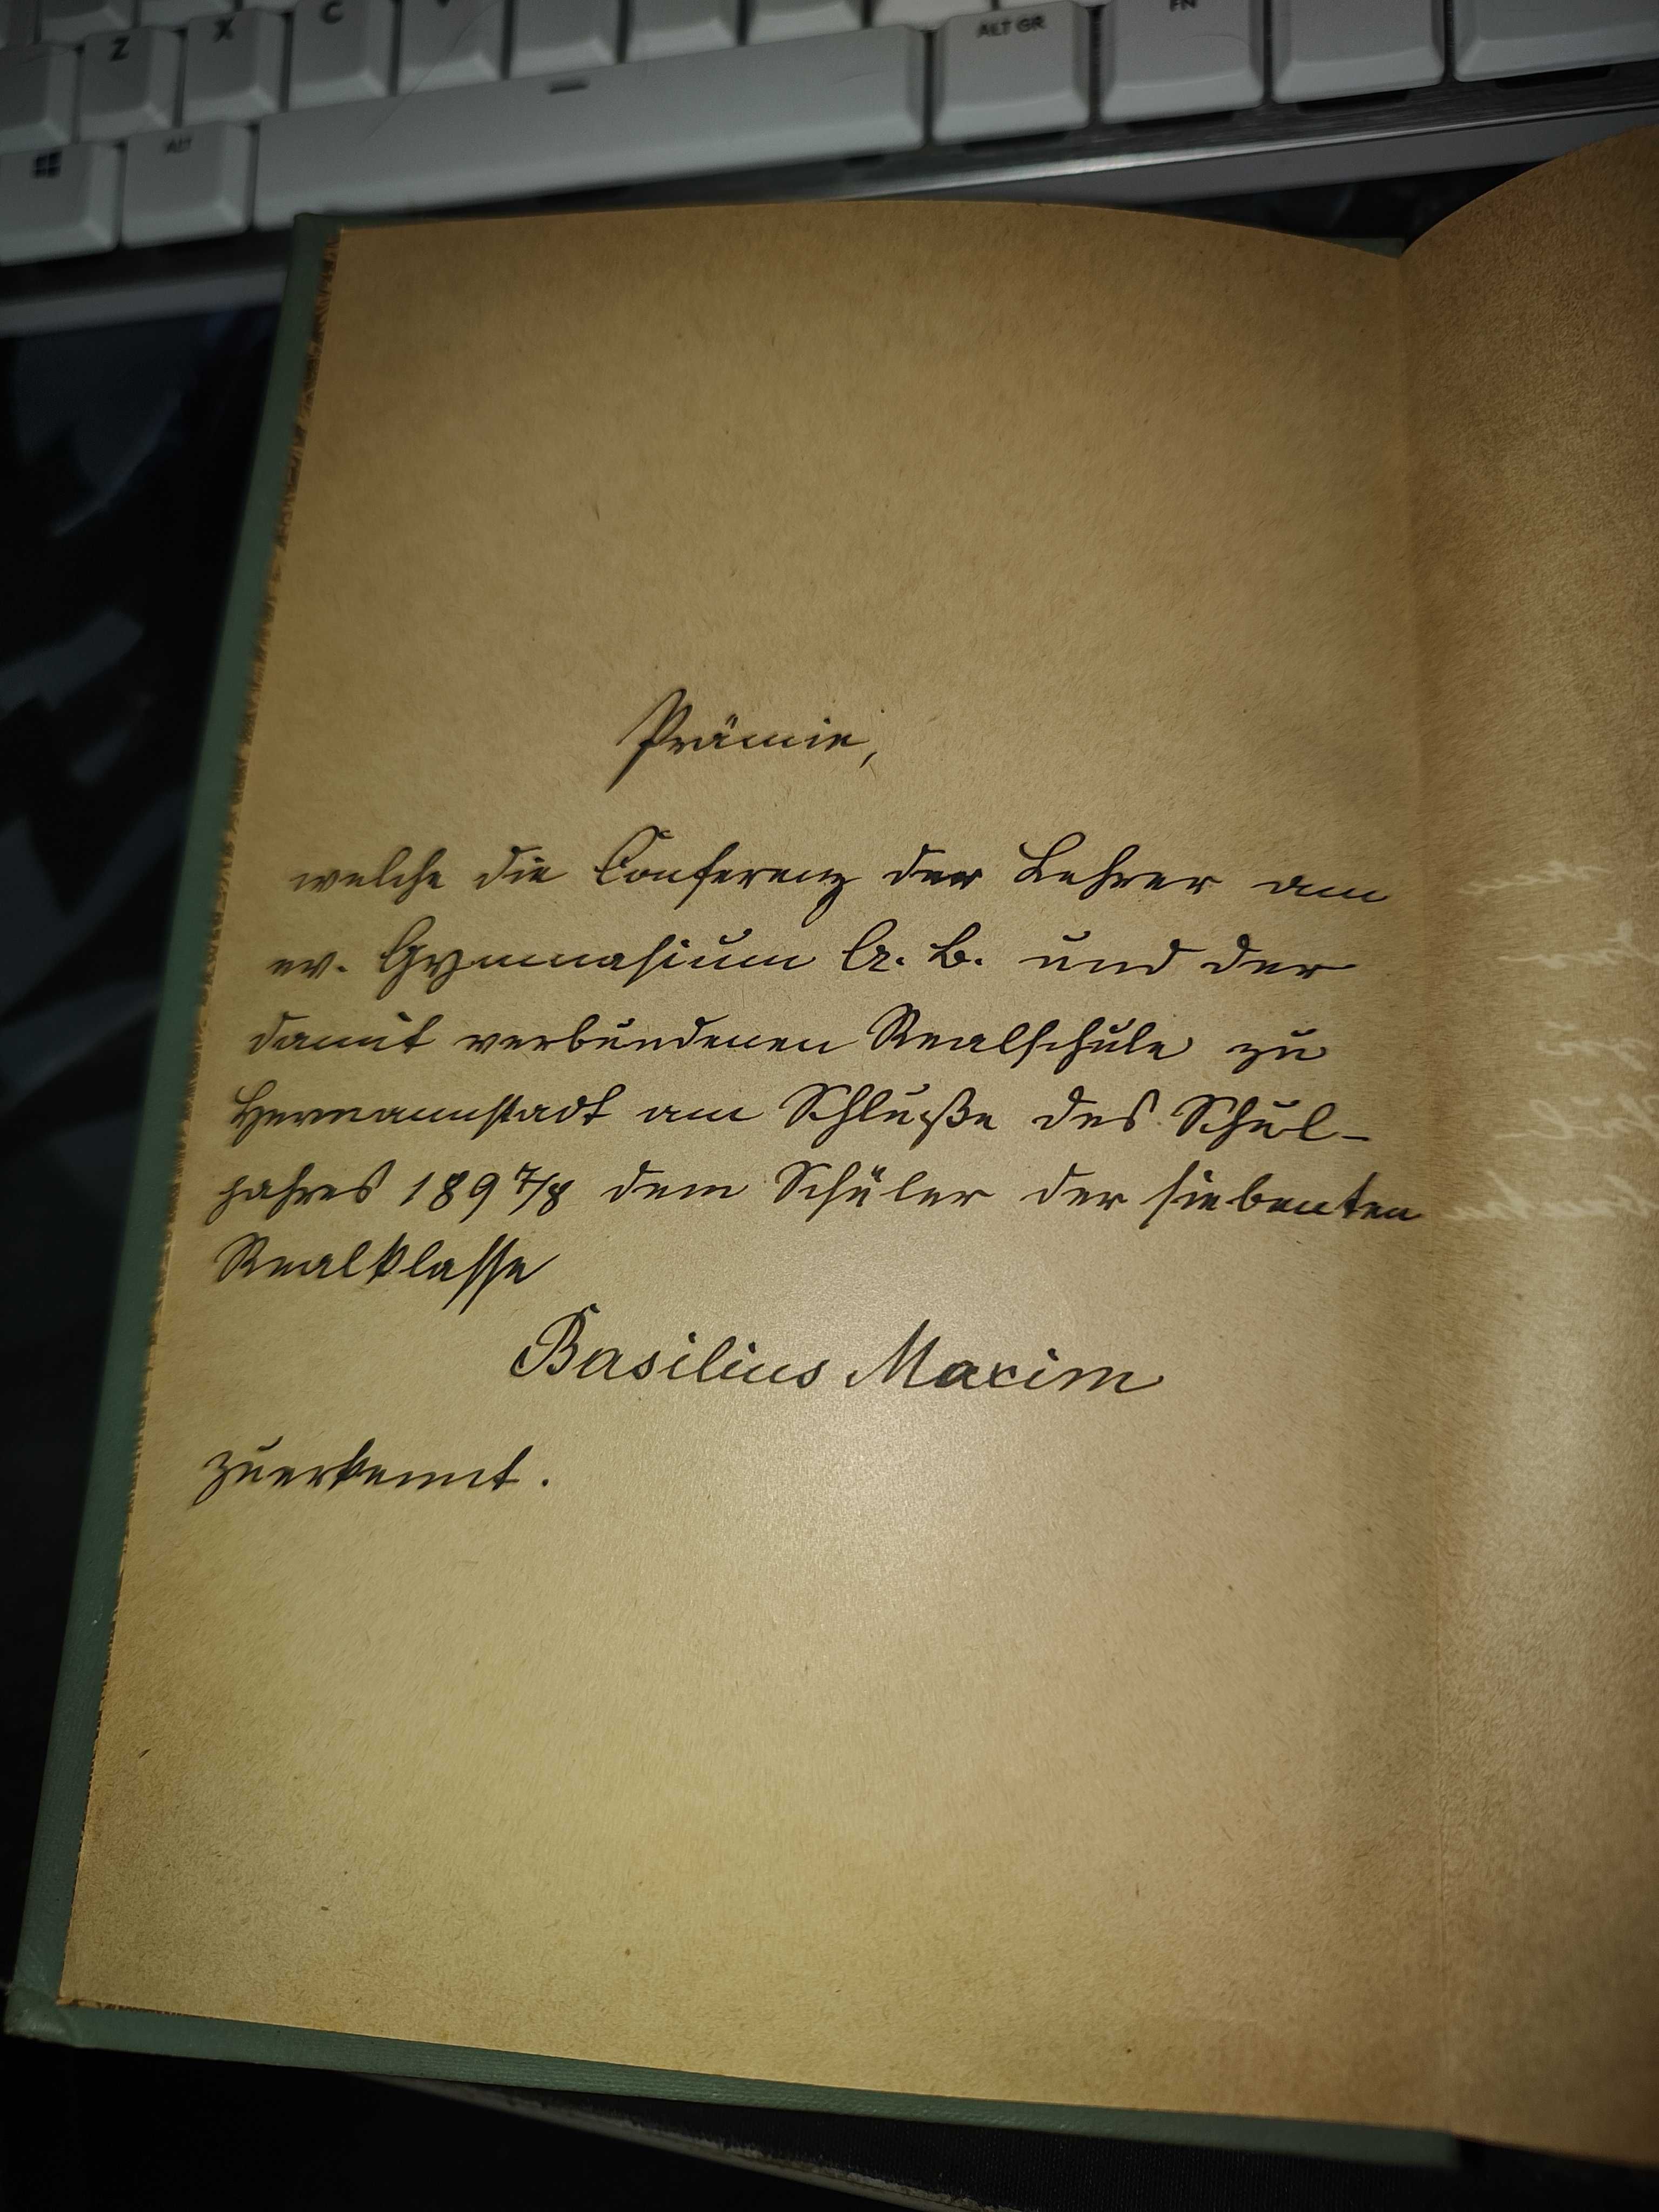 Z X C
ALT GR
FN
ALT
Prämie,
welche die Conferenz der Lehrer am
ev. Gymnasium A. B. und der
damit verbundenen Realschule zu
Hermannstadt am Schluße des Schul-
jahres 189 7/8 dem Schüler der siebenten
Realklasse
Basilius Maxim
zuerkennt.